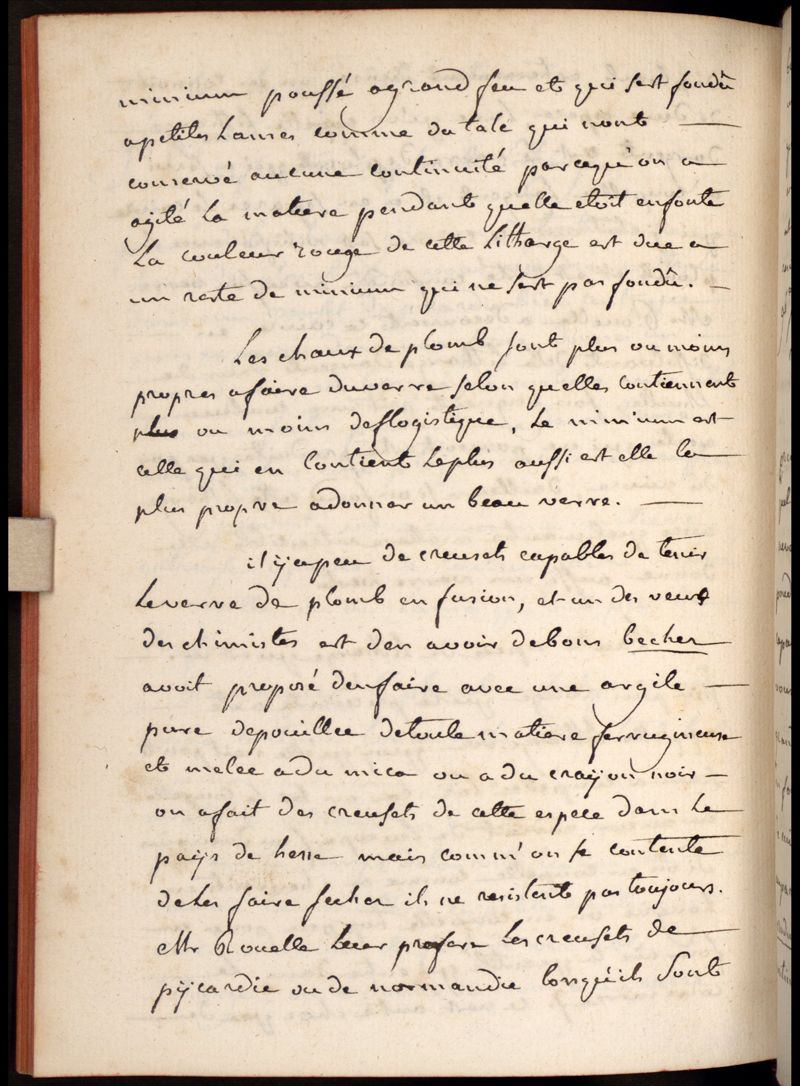 minium poussé agrand feu et qui sest fondû
apetites Lames comme du talc qui nont —
conservé aucune continuité parcequ'on a
agité La matiere pendant quelle etoit enfonte
La couleur rouge de cette Litharge est due a
un reste de minium qui ne sest pas fondû. —
Les chaux de plomb sont plus ou moins
propres afaire duverre selon quelles contiennent
plus ou moins deflogistique, Le minium est
celle qui en Contient Leplus aussi est elle la —
plus propre adonner un beau verre. —
il ÿ apeu de creusets capables de tenir
Leverre de plomb en fusion, et un des veux
des chimistes est den avoir debons becher
avoit proposé denfaire avec une argile —
pure depouillee detoute matiere ferrugineuse
et melee adu mica ou adu craÿon noir —
on afait des creusets de cette espece dans Le
paÿs de hesse mais comm' on se contente
deLes faire secher ils ne resistent pas toujours.
Mr Rouelle Leur prefere Les creusets de —
pÿcardie ou de normandie lorsqu'ils Sont